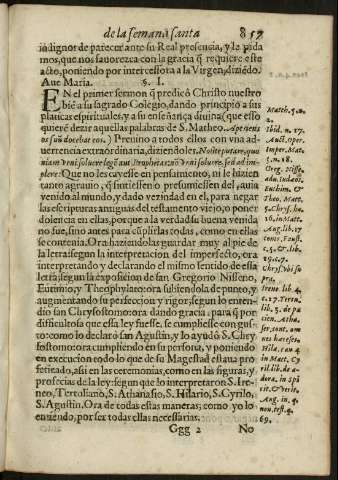 de la semana santa 857
iõ dignos de parecer ante su Real presencia, y le pida
mos, que nos fauorezca con la gracia q̃ requiere este
acto, poniendo por intercessora a la Virgen, diziẽdo.
Aue Maria. §. I.
EN el primer sermon q̃ predicò Christo nuestro
biẽ a su sagrado Colegio, dando principio a sus
platicas espirituales, y a su enseñança diuina (que esso
quierẽ dezir aquellas palabras de S. Matheo.
os suũ docebat eos.) Preuino a todos ellos con vna ad-
uertencia extraordinaria, diziendoles. Nolite putare, quo
niam veni soluere legẽ aut Prophetas: nõ veni soluere, sed adim-
plere: Que no les cayesse en pensamiento, ni le hiziesen
tanto agrauio, q̃ sintiessen o presumiessen del, auia
venido al mundo, y dado verdad en el, para negar
las escripturas antiguas del testamento viejo, o poner
dolencia en ellas, porque a la verdad su buena venida
no fue, sino antes para cũplirlas todas, como en ellas
se contenia. Ora haziendolas guardar muy al pie de
la letra: segun la interpretacion del imperfecto, ora
interpretando y declarando el mismo sentido de essa
letra: segun la exposicion de san Gregorio Nisseno,
Eutimio, y Theophylato: ora subiendola de punto, y
augmentando su perfeccion y rigor: segun lo enten-
dio san Chrysostomo: ora dando gracia, para q̃ por
dificultosa que essa ley fuesse, se cumpliesse con gus-
to: como lo declarò san Agustin, y lo ayudò S. Chry-
sostomo: ora cumpliendo en su persona, y poniendo
en execucion todo lo que de su Magestad estaua pro-
fetizado, assi en las ceremonias, como en las figuras, y
profecias de la ley: segun que lo interpretaron S. Ire-
neo, Tertuliano, S. Athanasio, S. Hilario, S. Cyrilo,
S. Agustin. Ora de todas estas maneras; como yo lo
entiendo, por ser todas ellas necessarias.
Ggg 2 No
Matth. 5. n.
2.
Ibid. n. 17.
Auct. oper.
Imper. Mat.
5. n. 18.
Greg. Nisse.
adu. Iudæos,
Euthim. &
Theo. Matt.
5. Chrys. ho.
16. in Matt.
Aug. lib. 17
cont. Faust.
c. 5. & lib.
19. c. 7.
Chrys. vbi su
pra.
Irene. lib. 4.
c. 27. Tertu.
lib. de pa
cien. Atha.
ser. cont. om
nes hæreses
Hila. can. 4
in Matt. Cy
ril. lib. de a-
dora. in spi
rit. & verit.
Aug. in q.
non. test. q.
69.